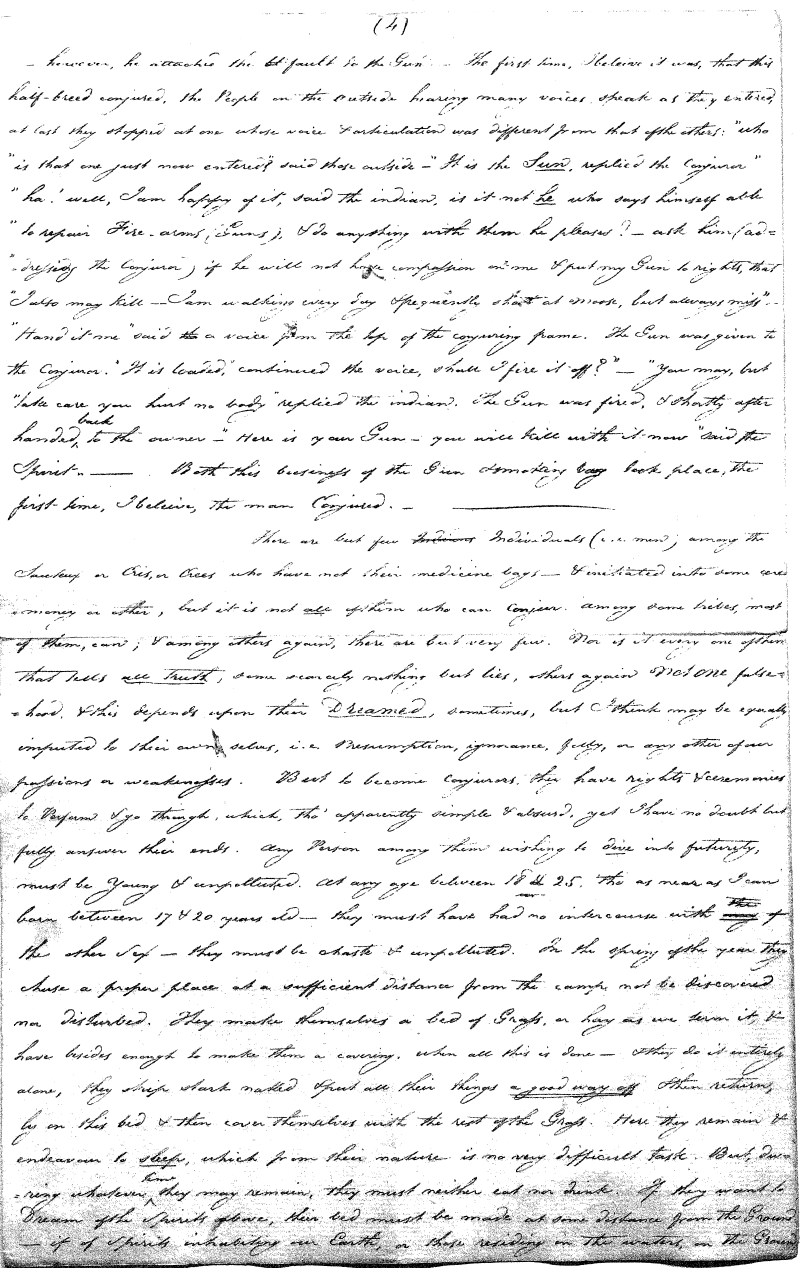 (4)
– however, he attached the fault to the Gun – The first time, I beleive it was, that this
half-breed conjured, the People on the outside hearing many voices speak as they entered,
at last they stopped at one whose voice & articulation was different from that of the others: "who
"is that one just now entered?" said those outside – "It is the Sun, replied the conjuror"
"ha! well, I am happy of it, said the indian, is it not he who says himself able
"to repair Fire-arms, (Guns), & do anything with them he pleases? – ask him (ad=
"dressing the Conjuror) if he will not have compassion on me & put my Gun to rights, that
"I also may kill – I am walking every day & frequently shoot at moose, but always miss". –
"Hand it me" said a voice from the top of the conjuring frame. The Gun was given to
the Conjuror. "It is loaded," continued the voice, shall I fire it off?" – "You may, but
"take care you hurt no body" replied the indian. The Gun was fired, & shortly after
handed back to the owner – "Here is your Gun – you will kill with it now" said the
Spirit. – Both this business of the Gun & smoking bag took place, the
first time, I beleive, the man Conjured. –
There are but few Indians Individuals (i.e. men) among the
Sauteux or Cris, or Crees who have not their medicine bags – & initiated into some cere
=mony or other, but it is not all of them who can conjur. among some tribes, most
of them, can; & among others again, there are but very few. Nor is it every one of them
that tells all truth, some scarcely nothing but lies, others again not one false=
=hood, & this depends upon their Dreamed, sometimes, but I think may be equally
imputed to their own selves, i.e. Presumption, ignorance, folly, or any other of our
passions or weaknesses. But to become conjurors, they have rights & ceremonies
to Perform & go through, which, tho' apparently simple & absurd, yet I have no doubt but
fully answer their ends. Any Person among them wishing to dive into futurity,
must be Young & unpolluted. At any age between 18 & 25, tho as near as I can
learn between 17 & 20 years old – they must have had no intercourse with
the other Sex – they must be chaste & unpolluted. In the spring of the year they
chuse a proper place at a sufficient distance from the camp not be discovered
nor disturbed. They make themselves a bed of Grass, or hay as we term it, &
have besides enough to make them a covering. When all this is done – & they do it entirely
alone, they strip stark naked & put all their things a good way off & then return,
ly on this bed & then cover themselves with the rest of the Grass. Here they remain &
endeavour to sleep, which from their nature is no very difficult task. But, du=
=ring whatever time they may remain, they must neither eat nor drink. If they want to
Dream of the Spirits above, their bed must be made at some distance from the Ground
– if of Spirits inhabiting our Earth, or those residing in the waters, on the Ground